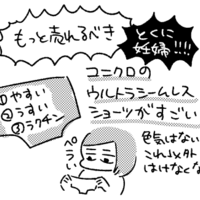 もっと売れるべき
とくに
妊婦!!!!
ユニクロの
ウルトラシームレス
ショーツがすごい
①やすい
②うすい
③ラクチン
ぺらぃ
色気はない
これ以外
はけなくな